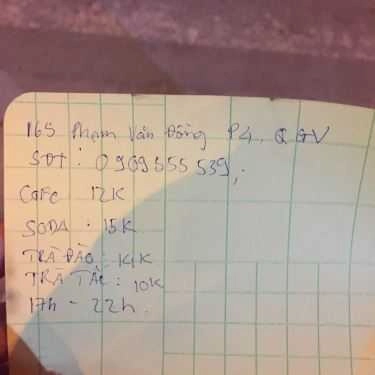 165 Phạm Văn Đồng P4, Q GV
SĐT : 0909555539,
CaFe 12K
SODA : 15K
TRÀ ĐÀO : 14K
TRÀ TẮC : 10K
17h - 22h.